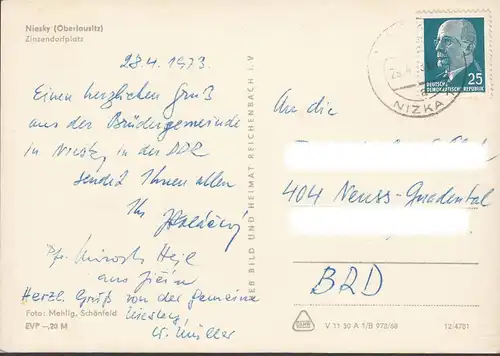 Niesky (Oberlausitz)
Zinzendorfplatz
28.4.1973.
Einen herzlichen Gruß
aus der Brüdergemeinde
in Niesky in der DDR
sendet Ihnen allen
Ihr
Pfr. Hejl
aus Jičín
Herzl. Gruß von der Gemeine
Niesky
W. Müller
Foto: Mehlig, Schönfeld
EVP –,20 M
BILD UND HEIMAT REICHENBACH I. V.
NIZKA
25
DEUTSCHE
DEMOKRATISCHE REPUBLIK
An die
404 Neuss-Gnadental
BRD
V 11 50 A 1/B 978/68
12/4781